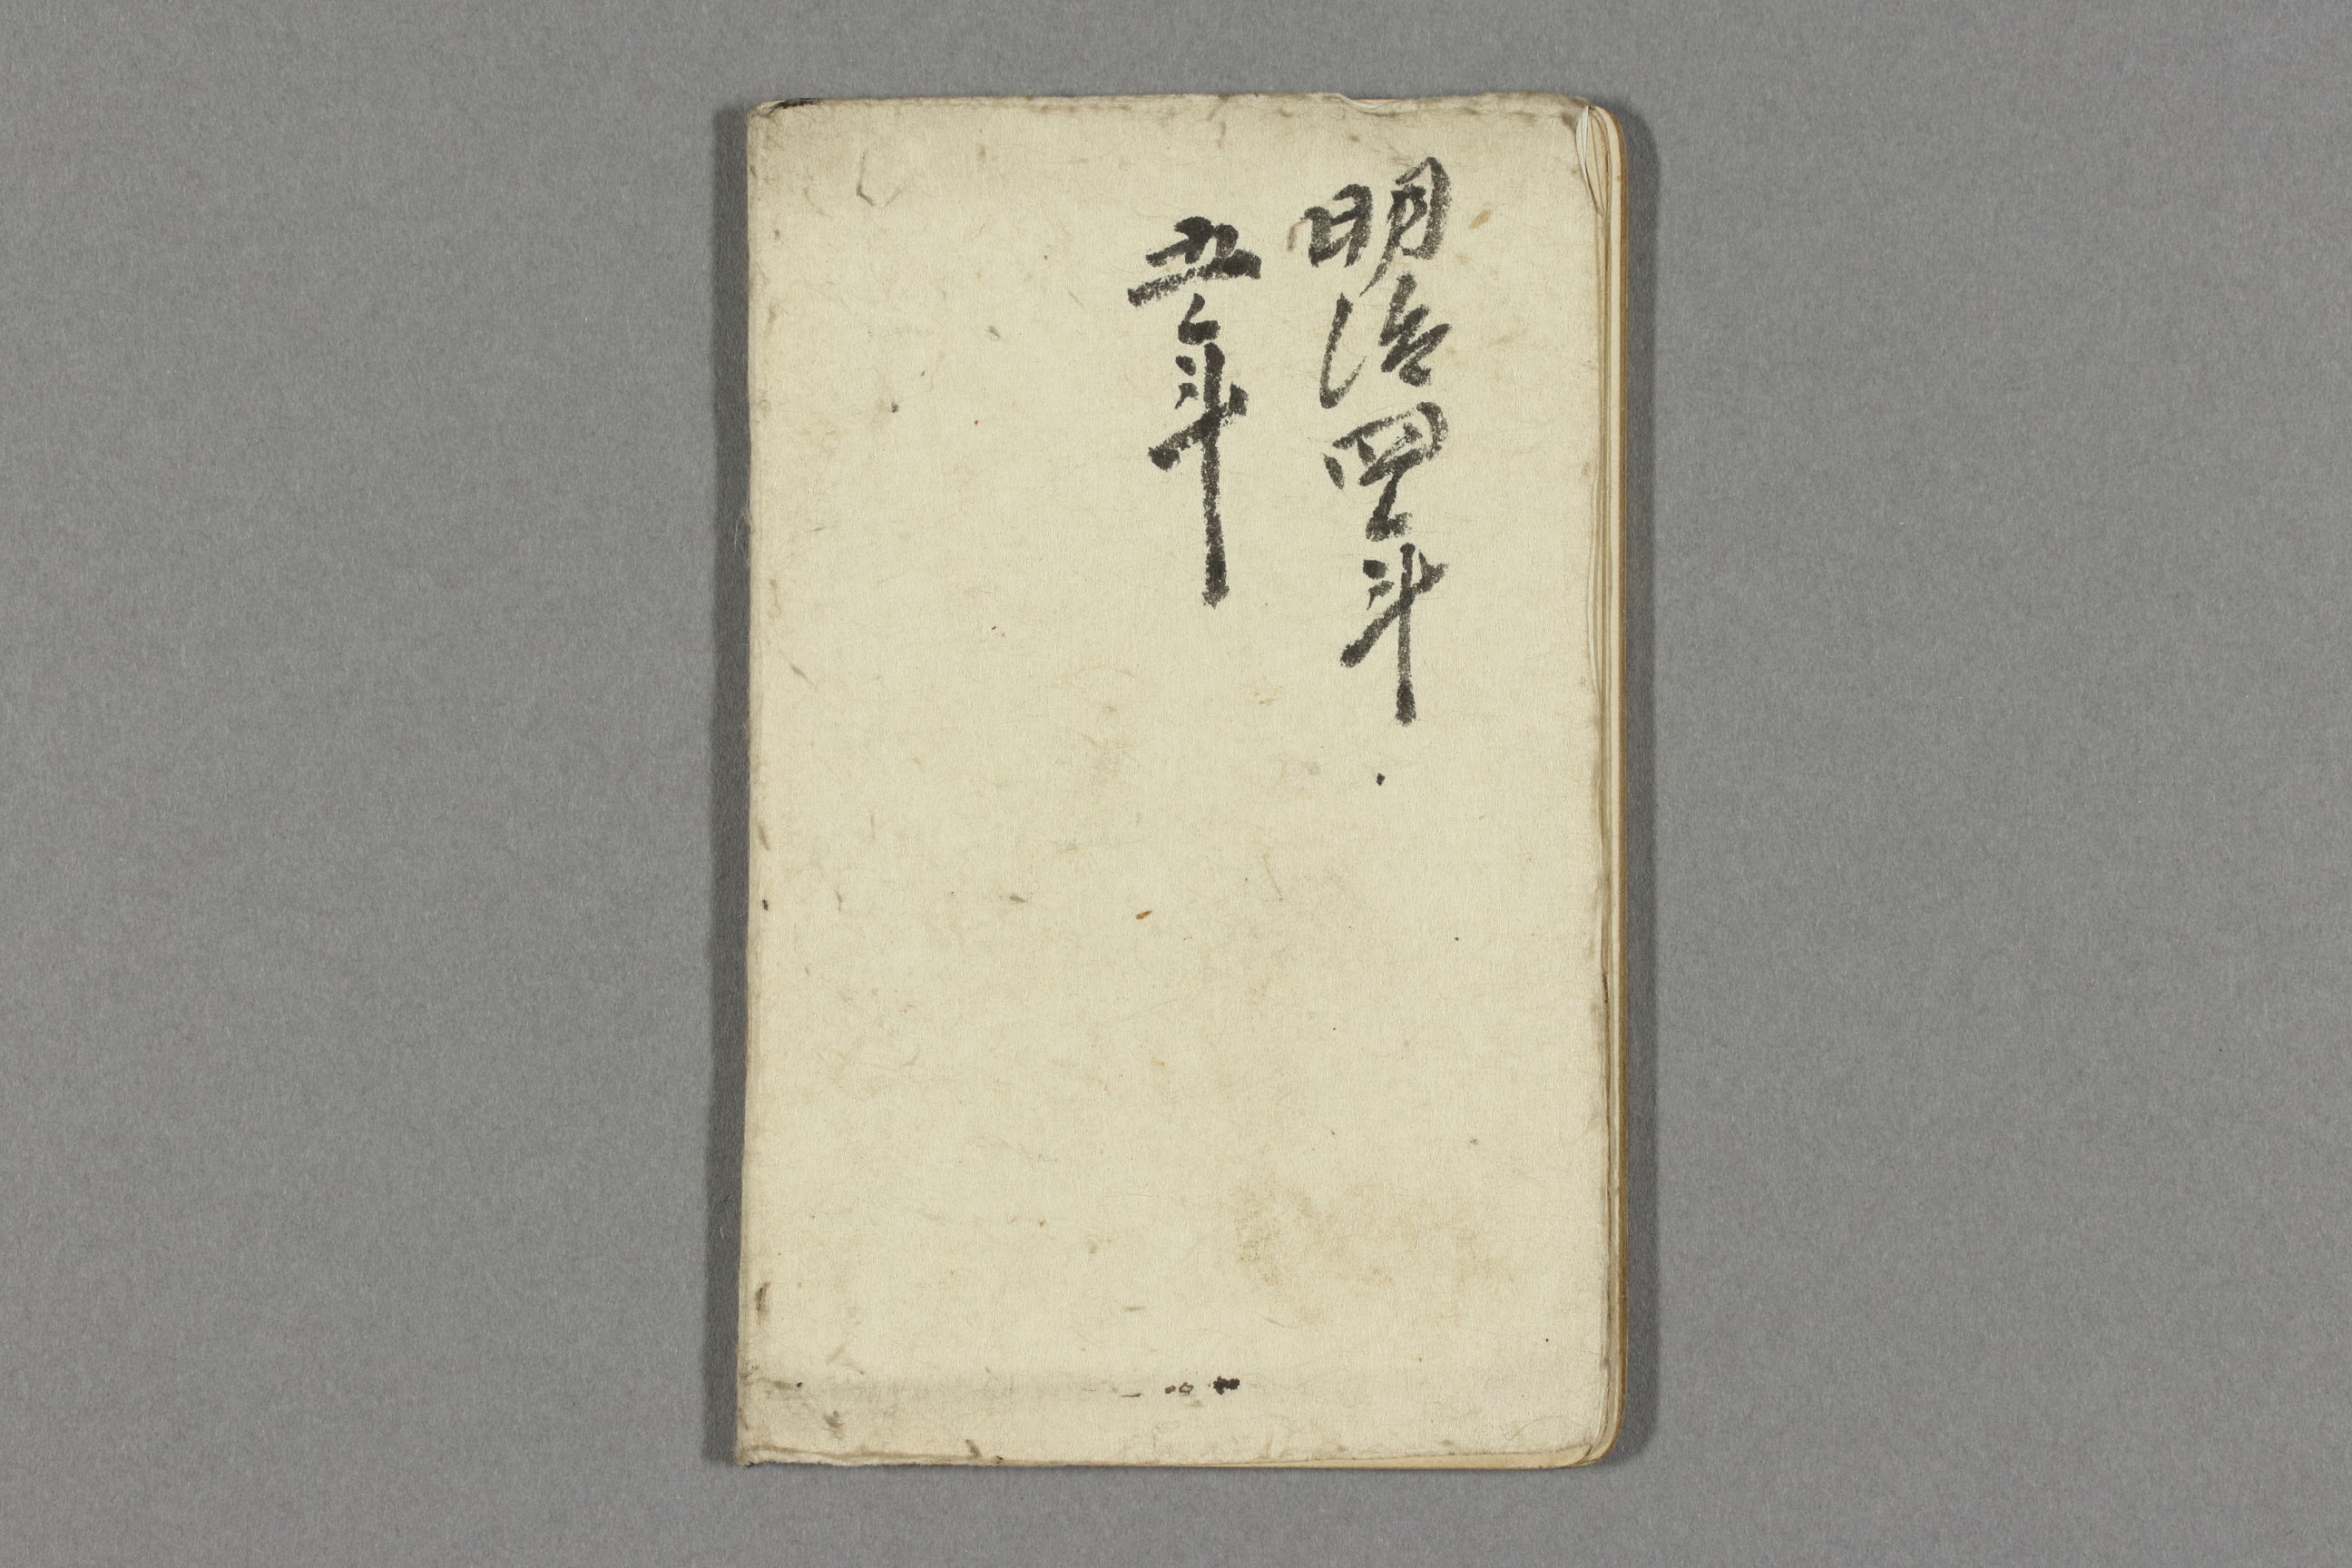 明治四年
五年